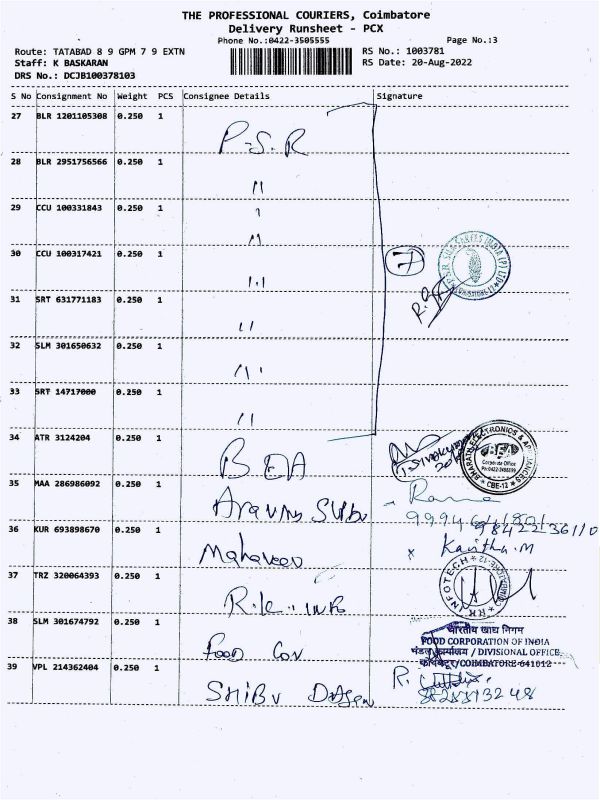 THE PROFESSIONAL COURIERS, Coimbatore
Delivery Runsheet - PCX
Phone No.:0422-3505555
Page No.:3
Route: TATABAD 8 9 GPM 7 9 EXTN
RS No.: 1003781
Staff: K BASKARAN
RS Date: 20-Aug-2022
DRS No.: DCJB100378103
S No Consignment No Weight PCS Consignee Details Signature
27 BLR 1201105308 0.250 1
P.S.R
28 BLR 2951756566 0.250 1
"
29 CCU 100331843 0.250 1
"
30 CCU 100317421 0.250 1
"
7
31 SRT 631771183 0.250 1
"
32 SLM 301650632 0.250 1
"
33 SRT 14717000 0.250 1
"
34 ATR 3124204 0.250 1
BEA
BHARATH ELECTRONICS & APPLIANCES
BEA
Corporate Office
CBE-12
35 MAA 286986092 0.250 1
Rama
36 KUR 693898670 0.250 1
9842236110
Mahaveer
x Kavitha.M
37 TRZ 320064393 0.250 1
RK INFOTECH
R.K. INFO
38 SLM 301674792 0.250 1
भारतीय खाद्य निगम
FOOD CORPORATION OF INDIA
Food Cor
मंडल कार्यालय / DIVISIONAL OFFICE
कोयंबटूर/COIMBATORE-641012
39 VPL 214362404 0.250 1